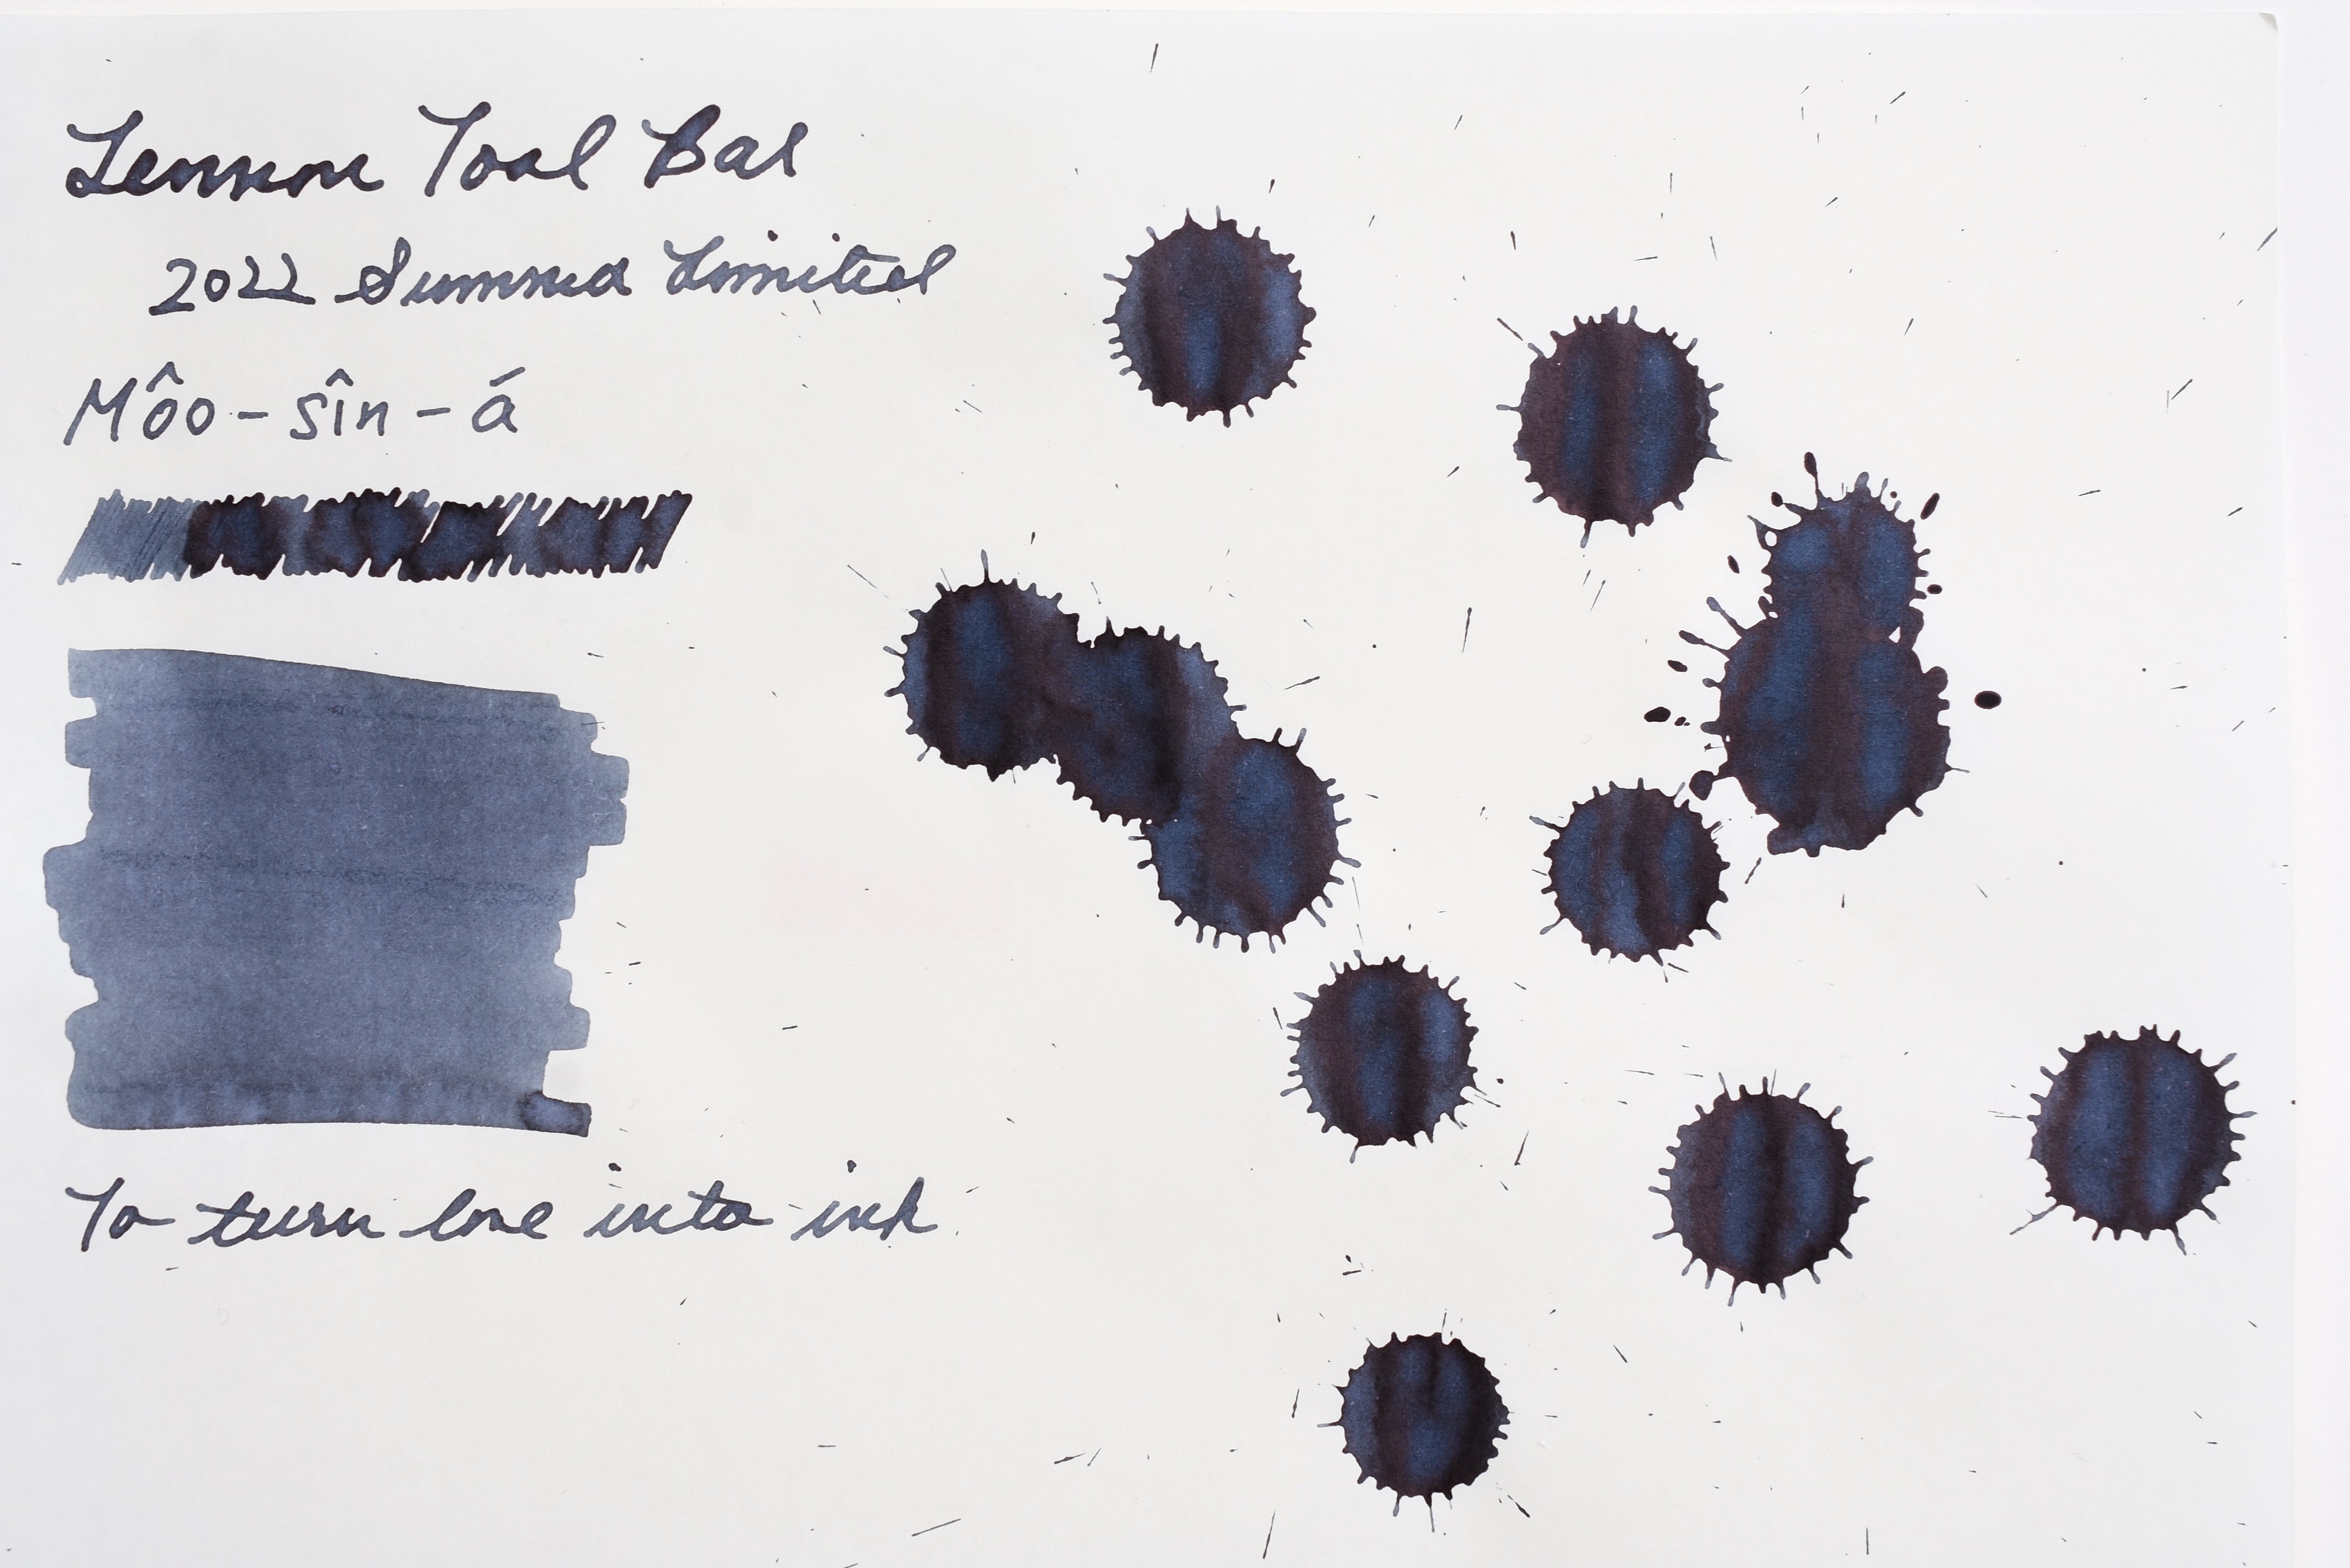 Lennon Tool Bar
2022 Summer Limited
Môo-sîn-á
To turn love into ink